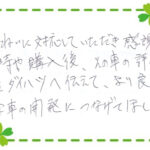 ねいに対応していただき感謝
時や購入後、人の車の評
ダイハツへ伝えて、より良
車の開発につなげてほし